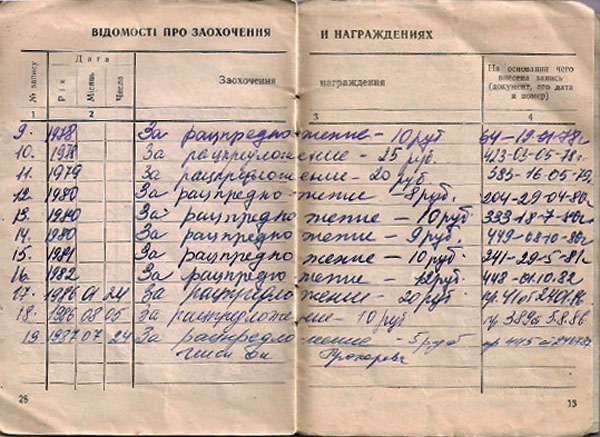 ВІДОМОСТІ ПРО ЗАОХОЧЕННЯ И НАГРАЖДЕНИЯХ
№ запису Дата Заохочення награждения На основании чего внесена запись (документ, его дата и номер)
Рік Місяць Число
1 2 3 4
9. 1978 За рацпредложение - 10 руб 64-19-01-78г
10. 1978 За рацпредложение - 25 руб. 423-03-05-78г.
11. 1979 За рацпредложение - 20 руб. 583-16-05-79.
12. 1980 За рацпредложение - 8 руб. 204-29-04-80г
13. 1980 За рацпредложение - 10 руб. 333-18-7-80г
14. 1980 За рацпредложение - 9 руб. 449-08-10-80г
15. 1981 За рацпредложение - 10 руб. 241-29-5-81г
16. 1982 За рацпредложение - 12 руб. 448-01.10.82
17. 1986 01 24 За рацпредложение - 20 руб. пр. 41 от
18. 1986 08 05 За рацпредложение - 10 руб пр 389 от 5.8.86
19 1987 07 24 За рацпредложение - 5 руб пр 445 от
28 13